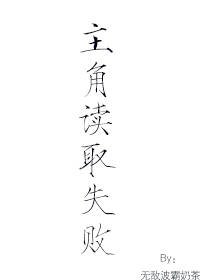 主角读取失败
By：
无敌波霸奶茶